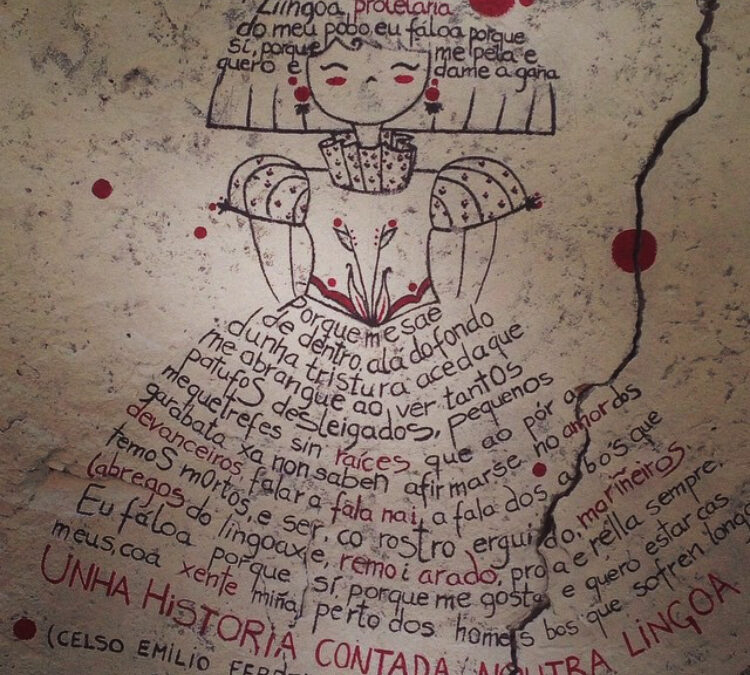 Liingoa proletaria
do meu pobo eu fáloa porque
sí, porque me peta e
quero e dame a gana
Porque me sae
de dentro, alá do fondo
dunha tristura aceda que
me abrangue ao ver tantos
patufos desleigados, pequenos
mequetrefes sin raíces que ao pór a
garabata xa non saben afirmarse no amor dos
devanceiros, falar a fala nai, a fala dos abós que
temos mortos, e ser, co rostro erguido, mariñeiros,
labregos do lingoaxe, remo i arado, proa e rella sempre.
Eu fáloa porque sí, porque me gosta e quero estar cas
meus, coa xente miña, perto dos homes bos que sofren longo
UNHA HISTORIA CONTADA NOUTRA LINGOA
(CELSO EMILIO